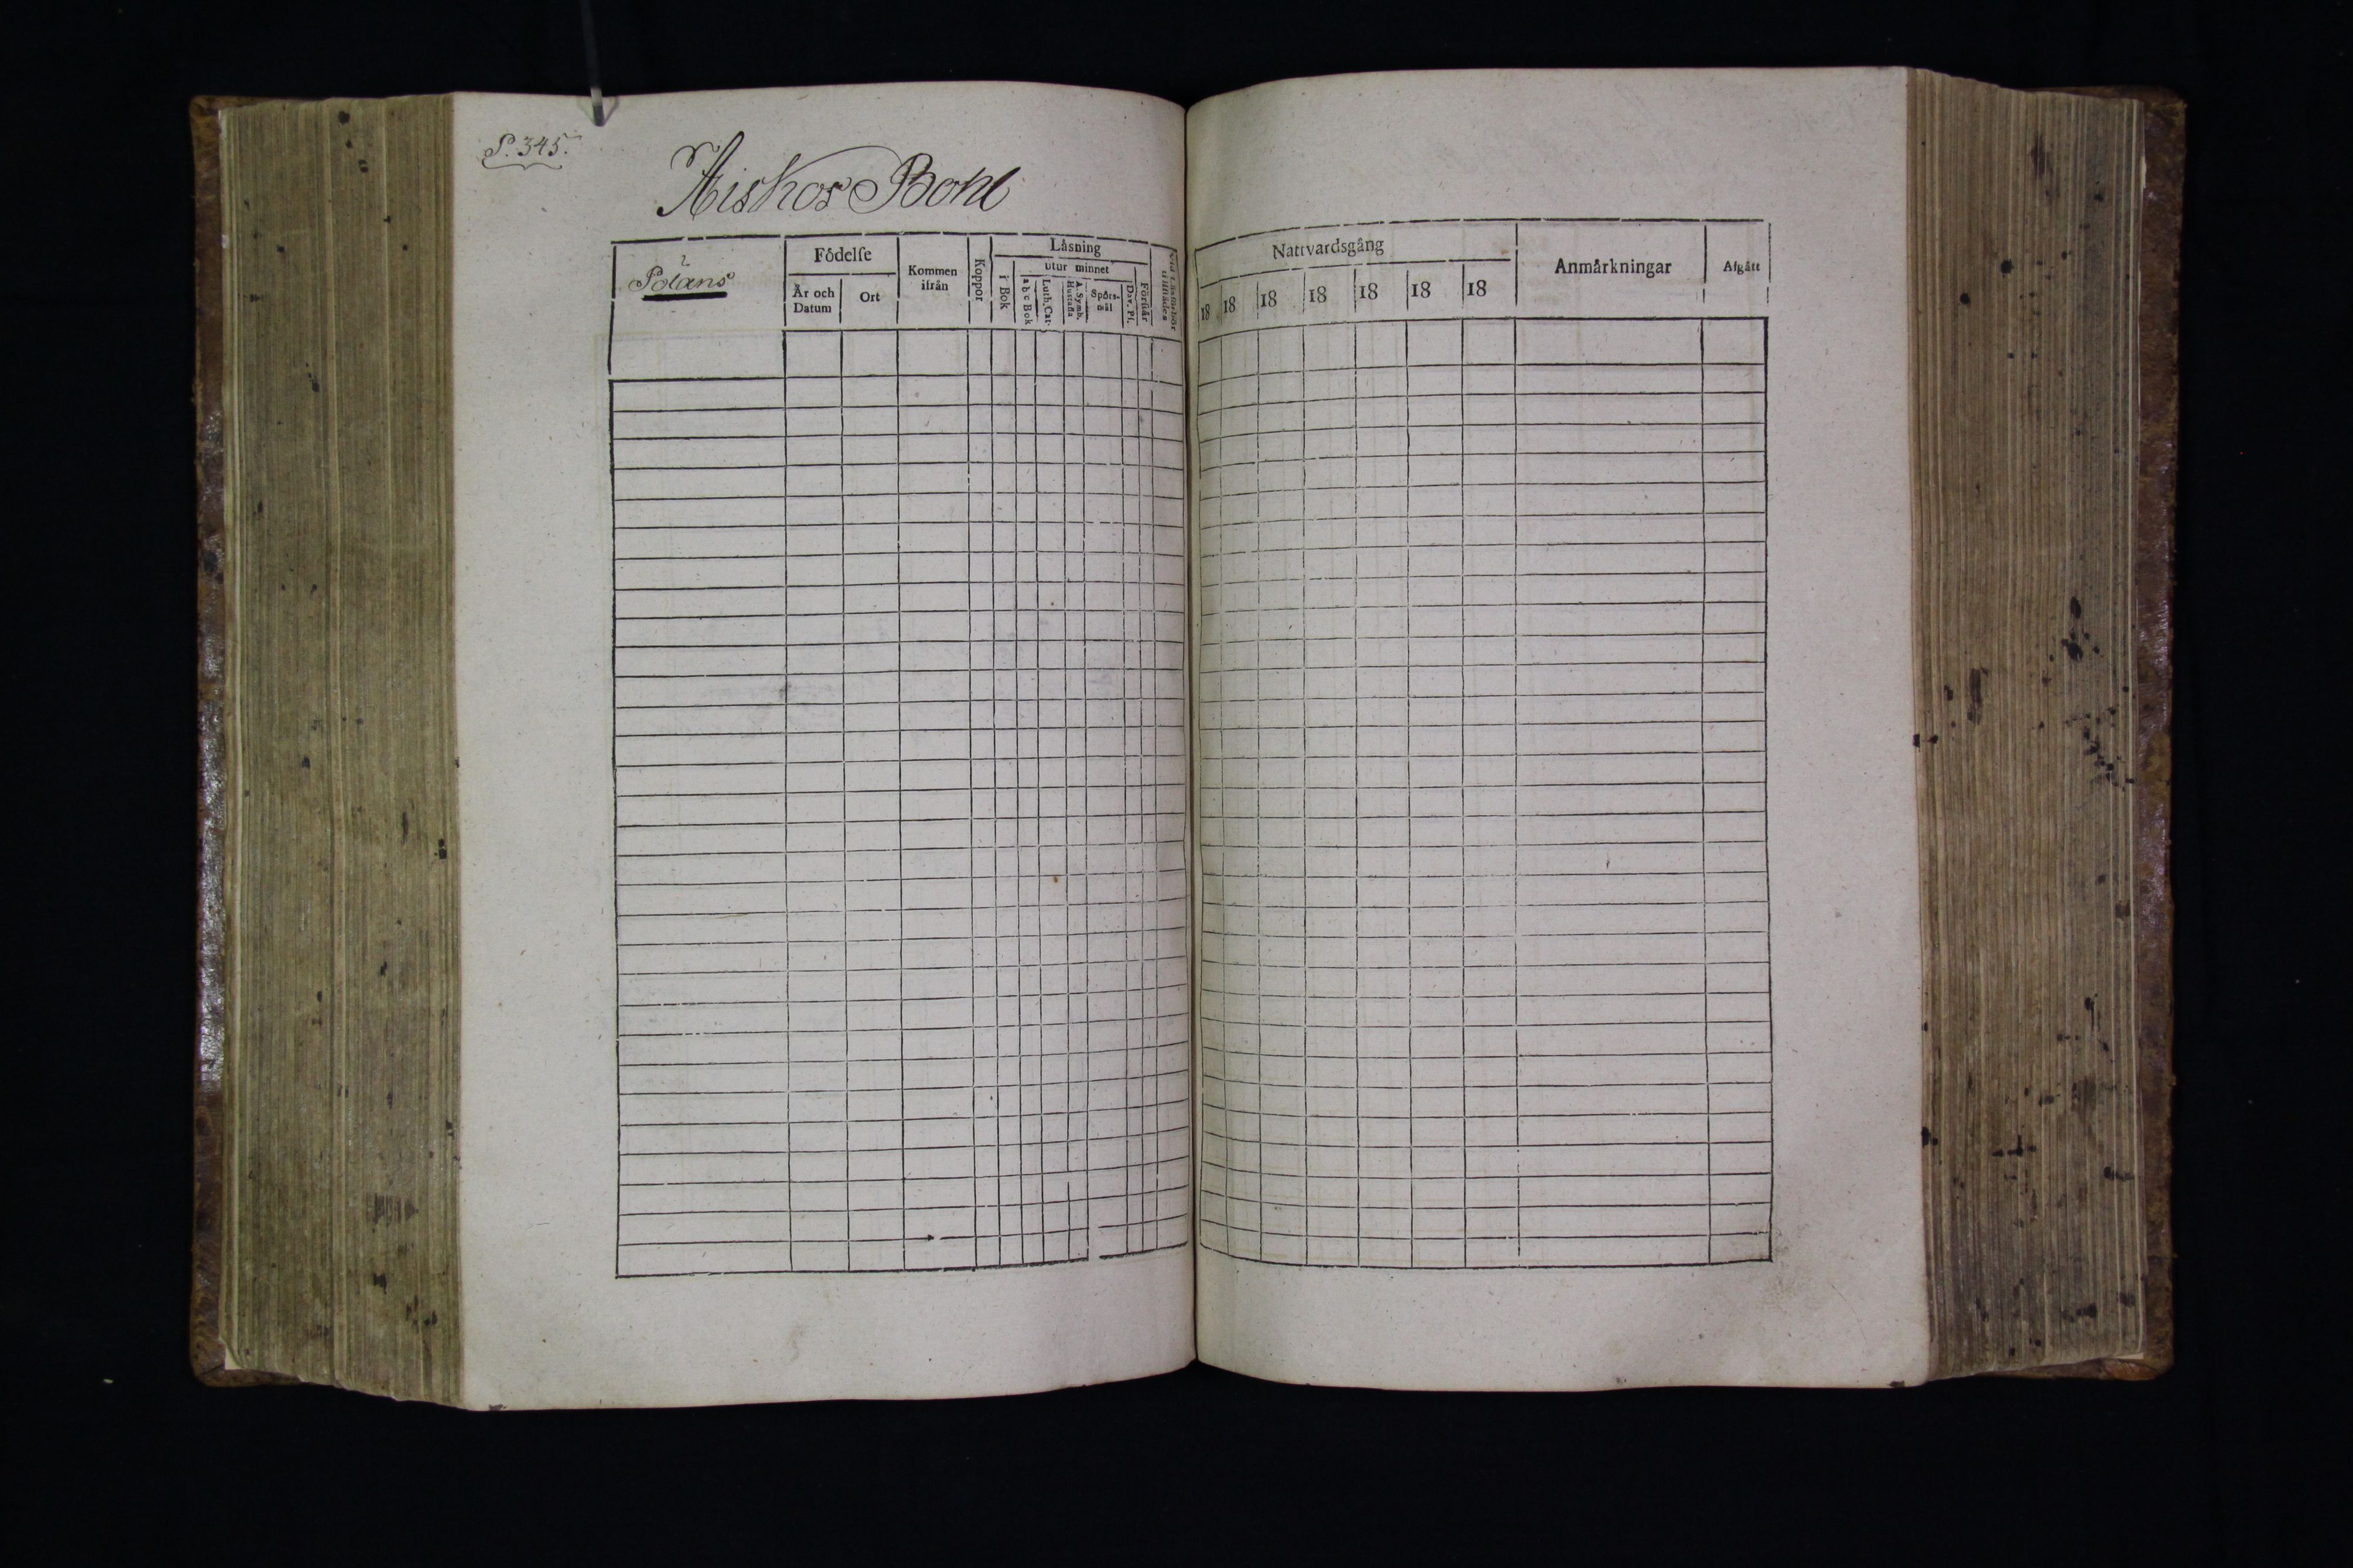 P. 345.
Aiskos Bohl
Polæns
Födelse
Är och Datum
Ort
Kommen ifrån
Koppor
Läsning
i Bok
utur minnet
a b c Bok
Luth. Cat.
A. Symb. Hustafla
Spörs-mål
Dav. Ps.
Förstår
Nattvardsgång
18 18 18 18 18 18 18
Anmärkningar
Afgått